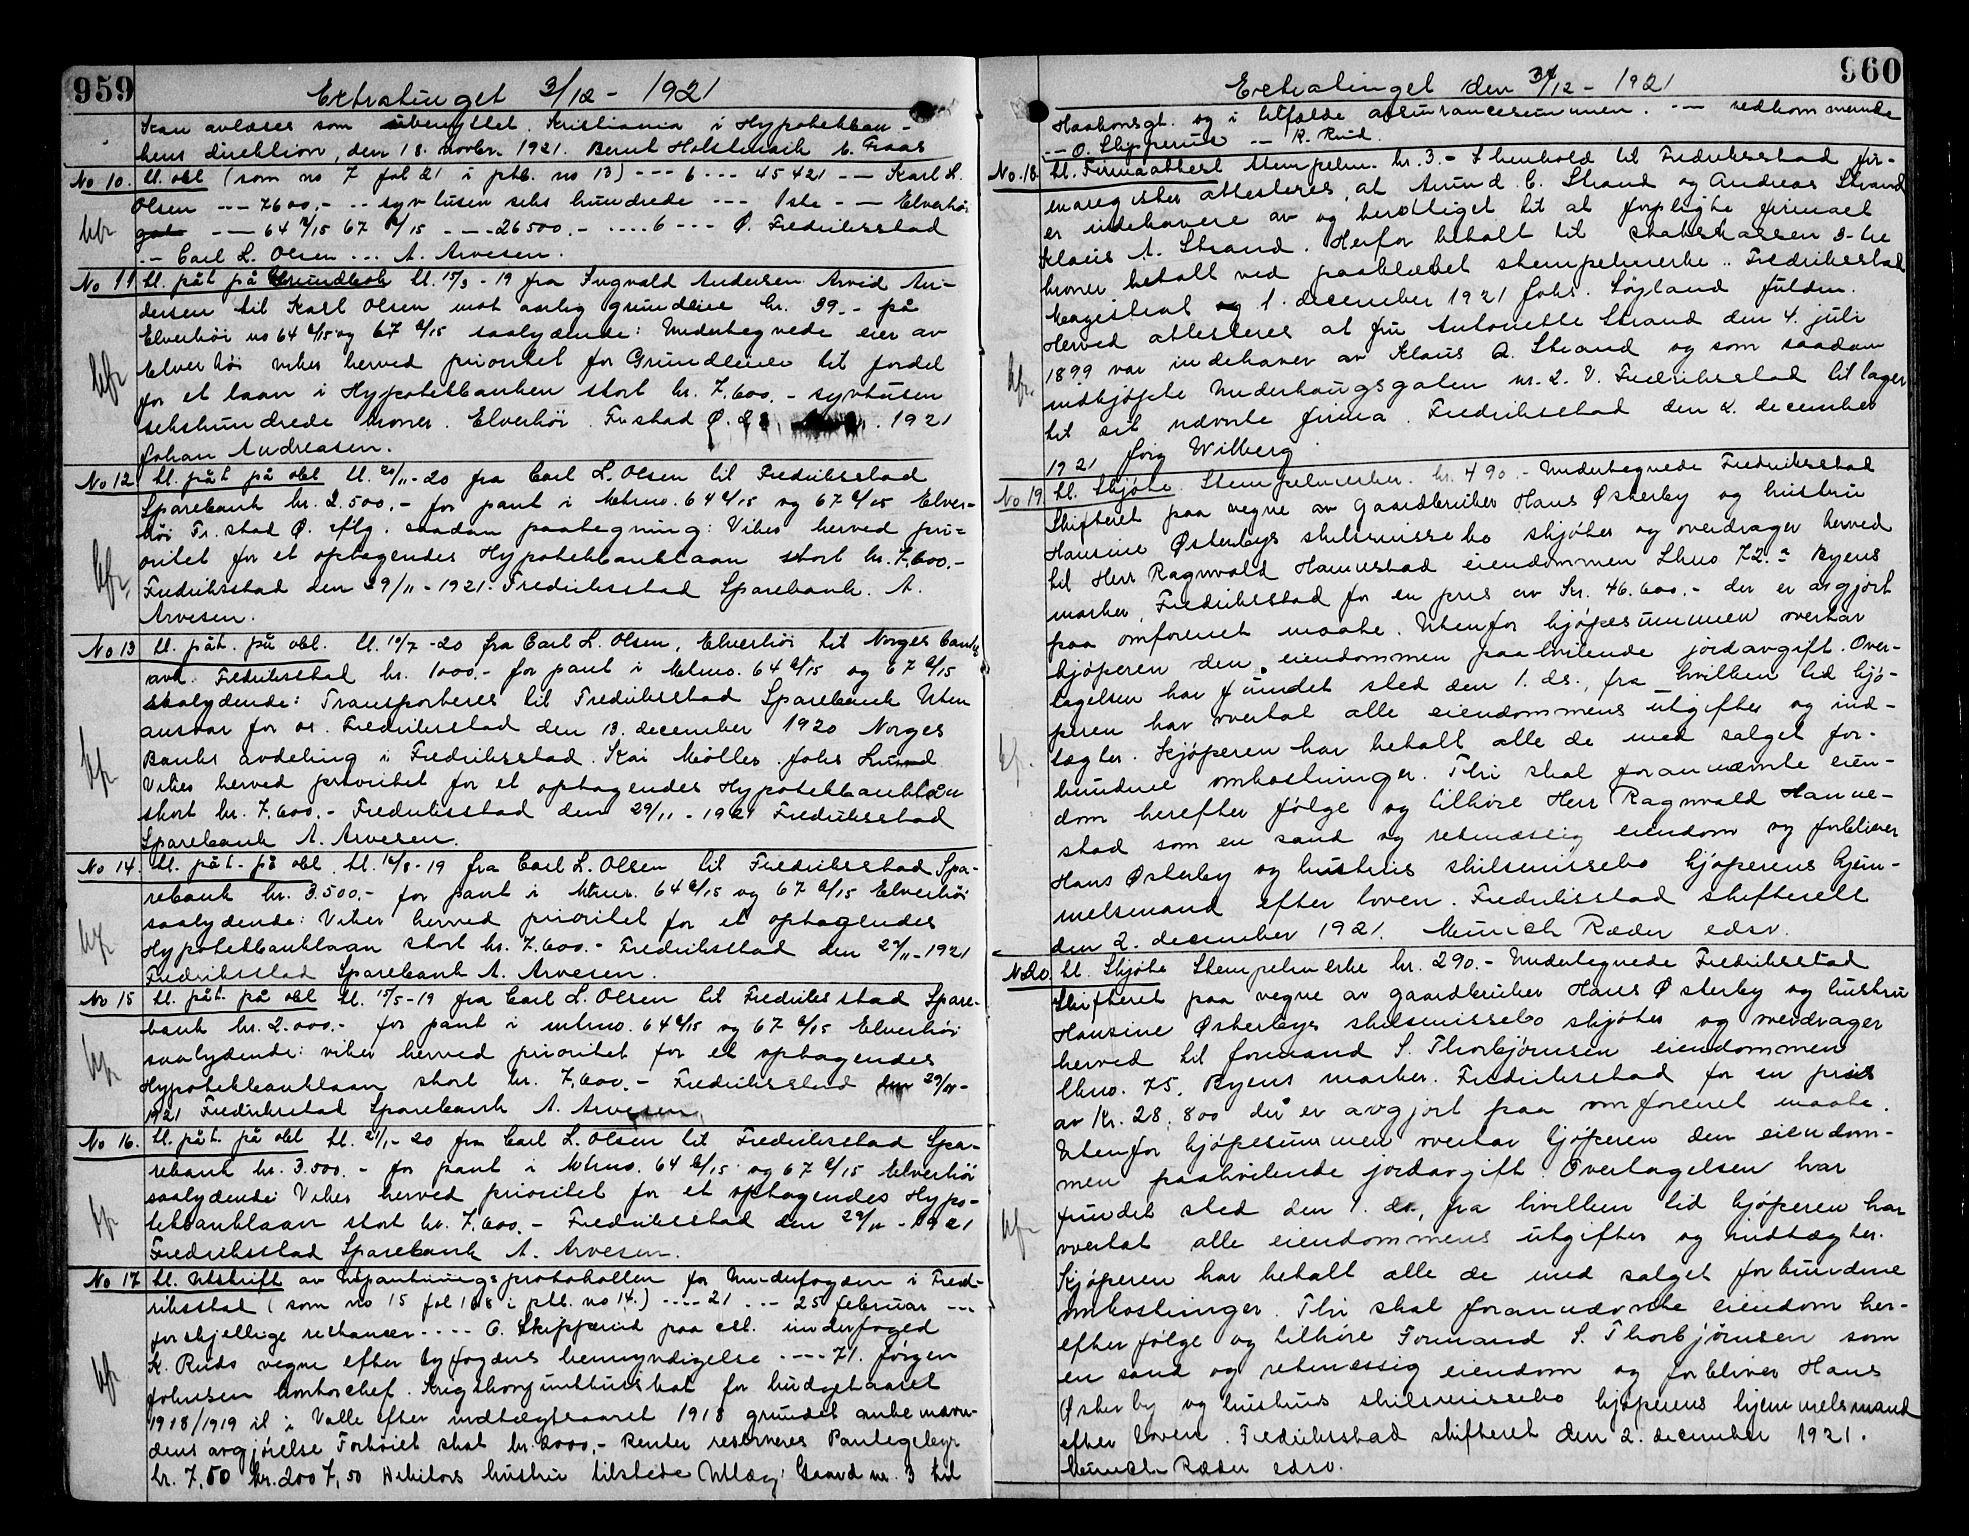 959
Extratinget 3/12 - 1921
Kan avlæses som ubenyttet. Kristiania i Hypotekban-
kens direktion, den 18. novbr. 1921. Bernt Holstmark E. Graas
No 10. tl. obl (som no 7 fol 21 i ptb. no 13) --- 6 --- 45421 -- Karl L.
Olsen --- 7600.- -- syv tusen seks hundrede --- 1ste - -- Elverhöi
gate --- 64 a/15 67 a/15 - --26500.- ....6 --- Ø. Fredriksstad
-- Carl L. Olsen ... A. Arvesen.
No 11 tl. påt på Grundbok tl. 15/3 - 19 fra Ingvald Andersen Arvid An-
dersen til Karl Olsen mot aarlig grundleie kr. 39.- på
Elverhöi no 64 a/15 og 67 a/15 saalydende: Undertegnede eier av
Elverhöi viker herved prioritet for Grundleien til fordel
for et laan i Hypotekbanken stort kr. 7.600.- syvtusen
sekshundrede kroner. Elverhöi. Fr.stad Ø. 28 . 1921
Johan Andreasen.
No 12. tl. påt på obl tl. 20/11-20 fra Carl L. Olsen til Fredriksstad
Sparebank kr. 2.500.- for pant i Mtrno. 64 a/15 og 67 a/15 Elver-
höi Fr.stad Ø. eftg. saadan paategning: Viker herved pri-
oritet for et optagendes Hypotekbanklaan stort kr. 7.600.-
Fredriksstad den 29/11 - 1921. Fredriksstad Sparebank. A.
Arvesen.
No 13 tl. påt. på obl. tl. 10/7 -20 fra Carl L. Olsen, Elverhöi til Norges Banks
avd. Fredriksstad kr. 1000.- for pant i Mtrno. 64 a/15 og 67 a/15
saalydende: Transporteres til Fredriksstad Sparebank Uten
ansvar for os. Fredriksstad den 13. december 1920 Norges
Banks avdeling i Fredriksstad. Kai Møller. Johs Lund
Vikes herved prioritet for et optagendes Hypotekbanklaan
stort kr. 7.600.- Fredriksstad den 29/11 - 1921 Fredriksstad
Sparebank A. Arvesen.
No 14. tl. påt. på obl. tl. 16/8-19 fra Carl L. Olsen til Fredriksstad Spa-
rebank kr. 3.500.- for pant i Mtrnr. 64 a/15 og 67 a/15 Elverhöi
saalydende: Viker herved prioritet for et optagendes
Hypotekbanklaan stort kr. 7.600.- Fredriksstad den 29/11-1921
Fredriksstad Sparebank A. Arvesen.
No 15 tl. påt. på obl tl. 15/5-19 fra Carl L. Olsen til Fredriksstad Spare-
bank kr. 2.000.- for pant i mtrno. 64 a/15 og 67 a/15 Elverhöi
saalydende: viker herved prioritet for et optagendes
Hypotekbanklaan stort kr. 7.600.- Fredriksstad den 29/11-
1921 Fredriksstad Sparebank A. Arvesen
No 16. tl. påt. på obl tl. 21/1-20 fra Carl L. Olsen til Fredriksstad Spa-
rebank kr. 3.500. - for pant i Mtrno. 64 a/15 og 67 a/15 Elverhöi
saalydende: Viker herved prioritet for et optagendes Hypo-
tekbanklaan stort kr. 7.600.- Fredriksstad den 29/11 - 1921
Fredriksstad Sparebank A. Arvesen.
No 17 tl. Utskrift av Utpantningsprotokollen for Underfogden i Fred-
riksstad (som no 15 fol 168 i ptb. no 14.) ----21 --- 25 februar ---
forskjellige restancer---- O. Skipperud paa cst. underfoged
K. Ruds vegne efter byfogdens bemyndigelse ---- 71. Jörgen
Johnsen kontorchef. Krigskonjunkturskat for budgetaaret
1918/1919 il i Valle efter indtægtsaaret 1918 grundet anke nævn-
dens avgjörelse Forhöiet skat kr. 2000,- Renter reserveres Pantegebyr
kr. 7,50 kr. 2007,50 Debitors hustru tilstede Utlæg: Gaard nr. 3 til
960
Extratinget den 3/12 - 1921
Haakonsgt. og i tilfælde assurancesummen. --- vedkommende
-- O. Skipperud -- K. Rud.
No. 18. tl. Firmaattest Stempelm. kr. 3.- I henhold til Fredriksstad fir-
maregister attesteres, at Amund C. Strand og Andreas Strand
er indehavere av og berettiget til at forpligte firmaet
Klaus A. Strand. Herfor betalt til statskassen 3-tre
kroner betalt ved paaklæbet stempelmerke. Fredriksstad
Magistrat 1. december 1921 Johs. Løyland fuldm.
Herved attesteres at fru Antonette Strand den 4. juli
1899 var indehaver av Klaus A. Strand og som saadan
indkjöpte Underhaugsgaten nr. 2. V. Fredriksstad til lager
til sit nævnte firma. Fredriksstad den 2. december
1921 Jörg Wilberg
No 19. tl. Skjöte. Stempelmerker. kr. 490.- Undertegnede Fredriksstad
Skifteret paa vegne av gaardbruker Hans Østerby og hustru
Hansine Østerbys skilsmissebo skjöter og overdrager herved
til Herr Ragnvald Hannestad eiendommen Lkno 72.a Byens
marker, Fredriksstad for en pris av Kr. 46.600.- der er avgjort
paa omforenet maate. Utenfor kjöpesummen overtar
kjöperen den eiendommen paahvilende jordavgift. Over-
tagelsen har fundet sted den 1. ds., fra hvilken tid kjö-
peren har overtat alle eiendommens utgifter og ind-
tægter. Kjöperen har betalt alle de med salget for-
bundne omkostninger. Thi skal forannævnte eien-
dom herefter følge og tilhöre Herr Ragnvald Hanne-
stad som en sand og retmæssig eiendom og forbliver
Hans Østerby og hustrus skilsmissebo kjöperens hjem-
melsmand efter loven. Fredriksstad skifterett
den 2. december 1921. Munch Ræder edsv.
No 20 tl. Skjöte Stempelmerke kr. 290.- Undertegnede Fredriksstad
Skifteret paa vegne av gaardbruker Hans Østerby og hustru
Hansine Østerbys skilsmissebo skjöter og overdrager
herved til formand S. Thorbjörnsen eiendommen
lkno. 75, Byens marker. Fredriksstad for en pris
av Kr. 28.800 der er avgjort paa omforenet maate.
Utenfor kjöpesummen overtar kjöperen den eiendom-
men paahvilende jordavgift. Overtagelsen har
fundet sted den 1. ds., fra hvilken tid kjöperen har
overtat alle eiendommens utgifter og indtægter.
Kjöperen har betalt alle de med salget forbundne
omkostninger. Thi skal forannævnte eiendom her-
efter følge og tilhöre Formand S. Thorbjörnsen som
en sand og retmessig eiendom og forbliver Hans
Østerby og hustrus skilsmissebo kjöperens hjemmelsmand
efter loven. Fredriksstad skifteret den 2. december 1921.
Munch Ræder edsv.